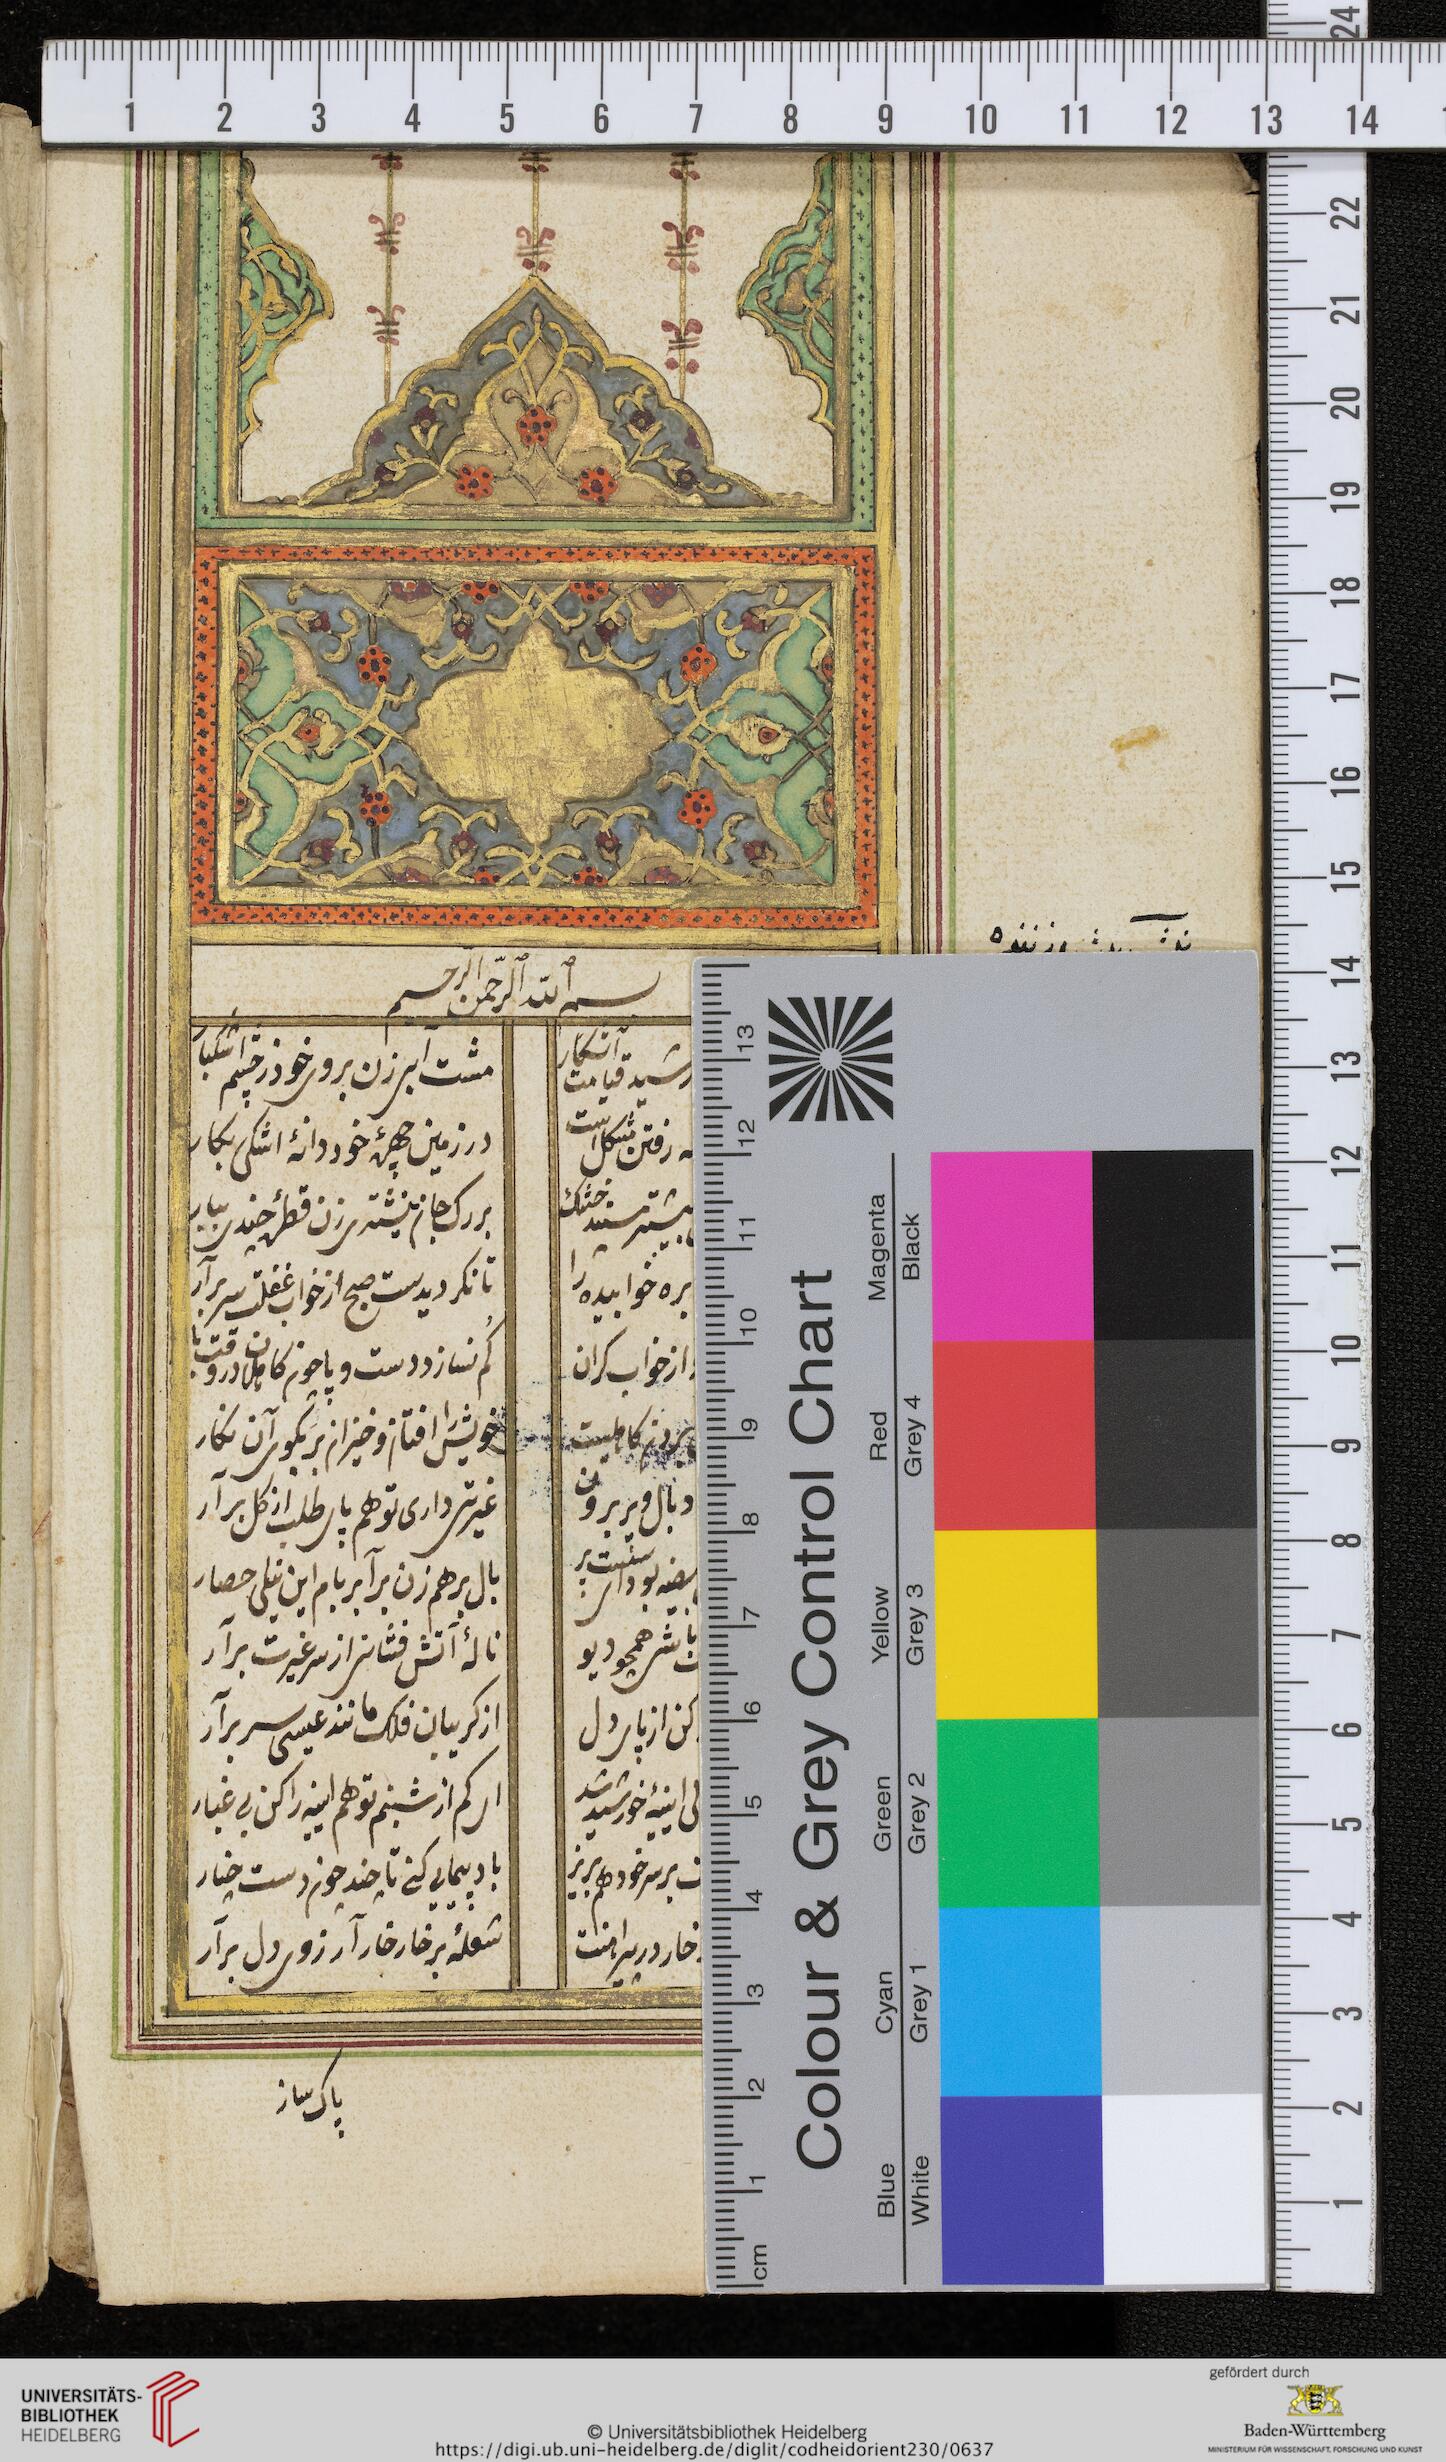 24
1 2 3 4 5 6 7 8 9 10 11 12 13 14
22
21
20
19
18
17
16
15
14
13
12
11
10
9
8
7
6
5
4
3
2
1
بسم الله الرحمن الرحیم
قیامت آشکار
مشت آبی زن بروی خود ز چشم اشکبار
رفتن مشکل است
در زمین چهرهٔ خود دانهٔ اشکی بکار
خشک
بر رگ جان نیشتری زن قطرهٔ چندی بیار
بره خوابیده را
تا نکردیدست صبح از خواب غفلت سر برآر
از خواب کران
کم نساز د دست و پا چون کاهلان در وقت
کاهلیست
خویش را افتان و خیزان بر بکوی آن نکار
د بال و پر برون
غیرتی داری تو هم پای طلب از کل برآر
بیضه بودن
بال برهم زن برآ بر بام این نیلی حصار
همچو دیو
نالهٔ آتش فشانی از سر غیرت برآر
کن از پای دل
از کریبان فلک مانند عیسی سر برآر
اینهٔ خورشید شد
ای کم از شبنم تو هم اینه را کن بی غبار
بر سر خود هم بریز
باد پیمایی کنی تا چند چون دست چنار
خار در پیراهنت
شعلهٔ بر خار خار آرزوی دل برآر
پاک ساز
Colour & Grey Control Chart
Magenta Red Yellow Green Cyan Blue
Black Grey 4 Grey 3 Grey 2 Grey 1 White
13
12
11
10
9
8
7
6
5
4
3
2
1
cm
UNIVERSITÄTS-
BIBLIOTHEK
HEIDELBERG
© Universitätsbibliothek Heidelberg
https://digi.ub.uni-heidelberg.de/diglit/codheidorient230/0637
gefördert durch
Baden-Württemberg
MINISTERIUM FÜR WISSENSCHAFT, FORSCHUNG UND KUNST